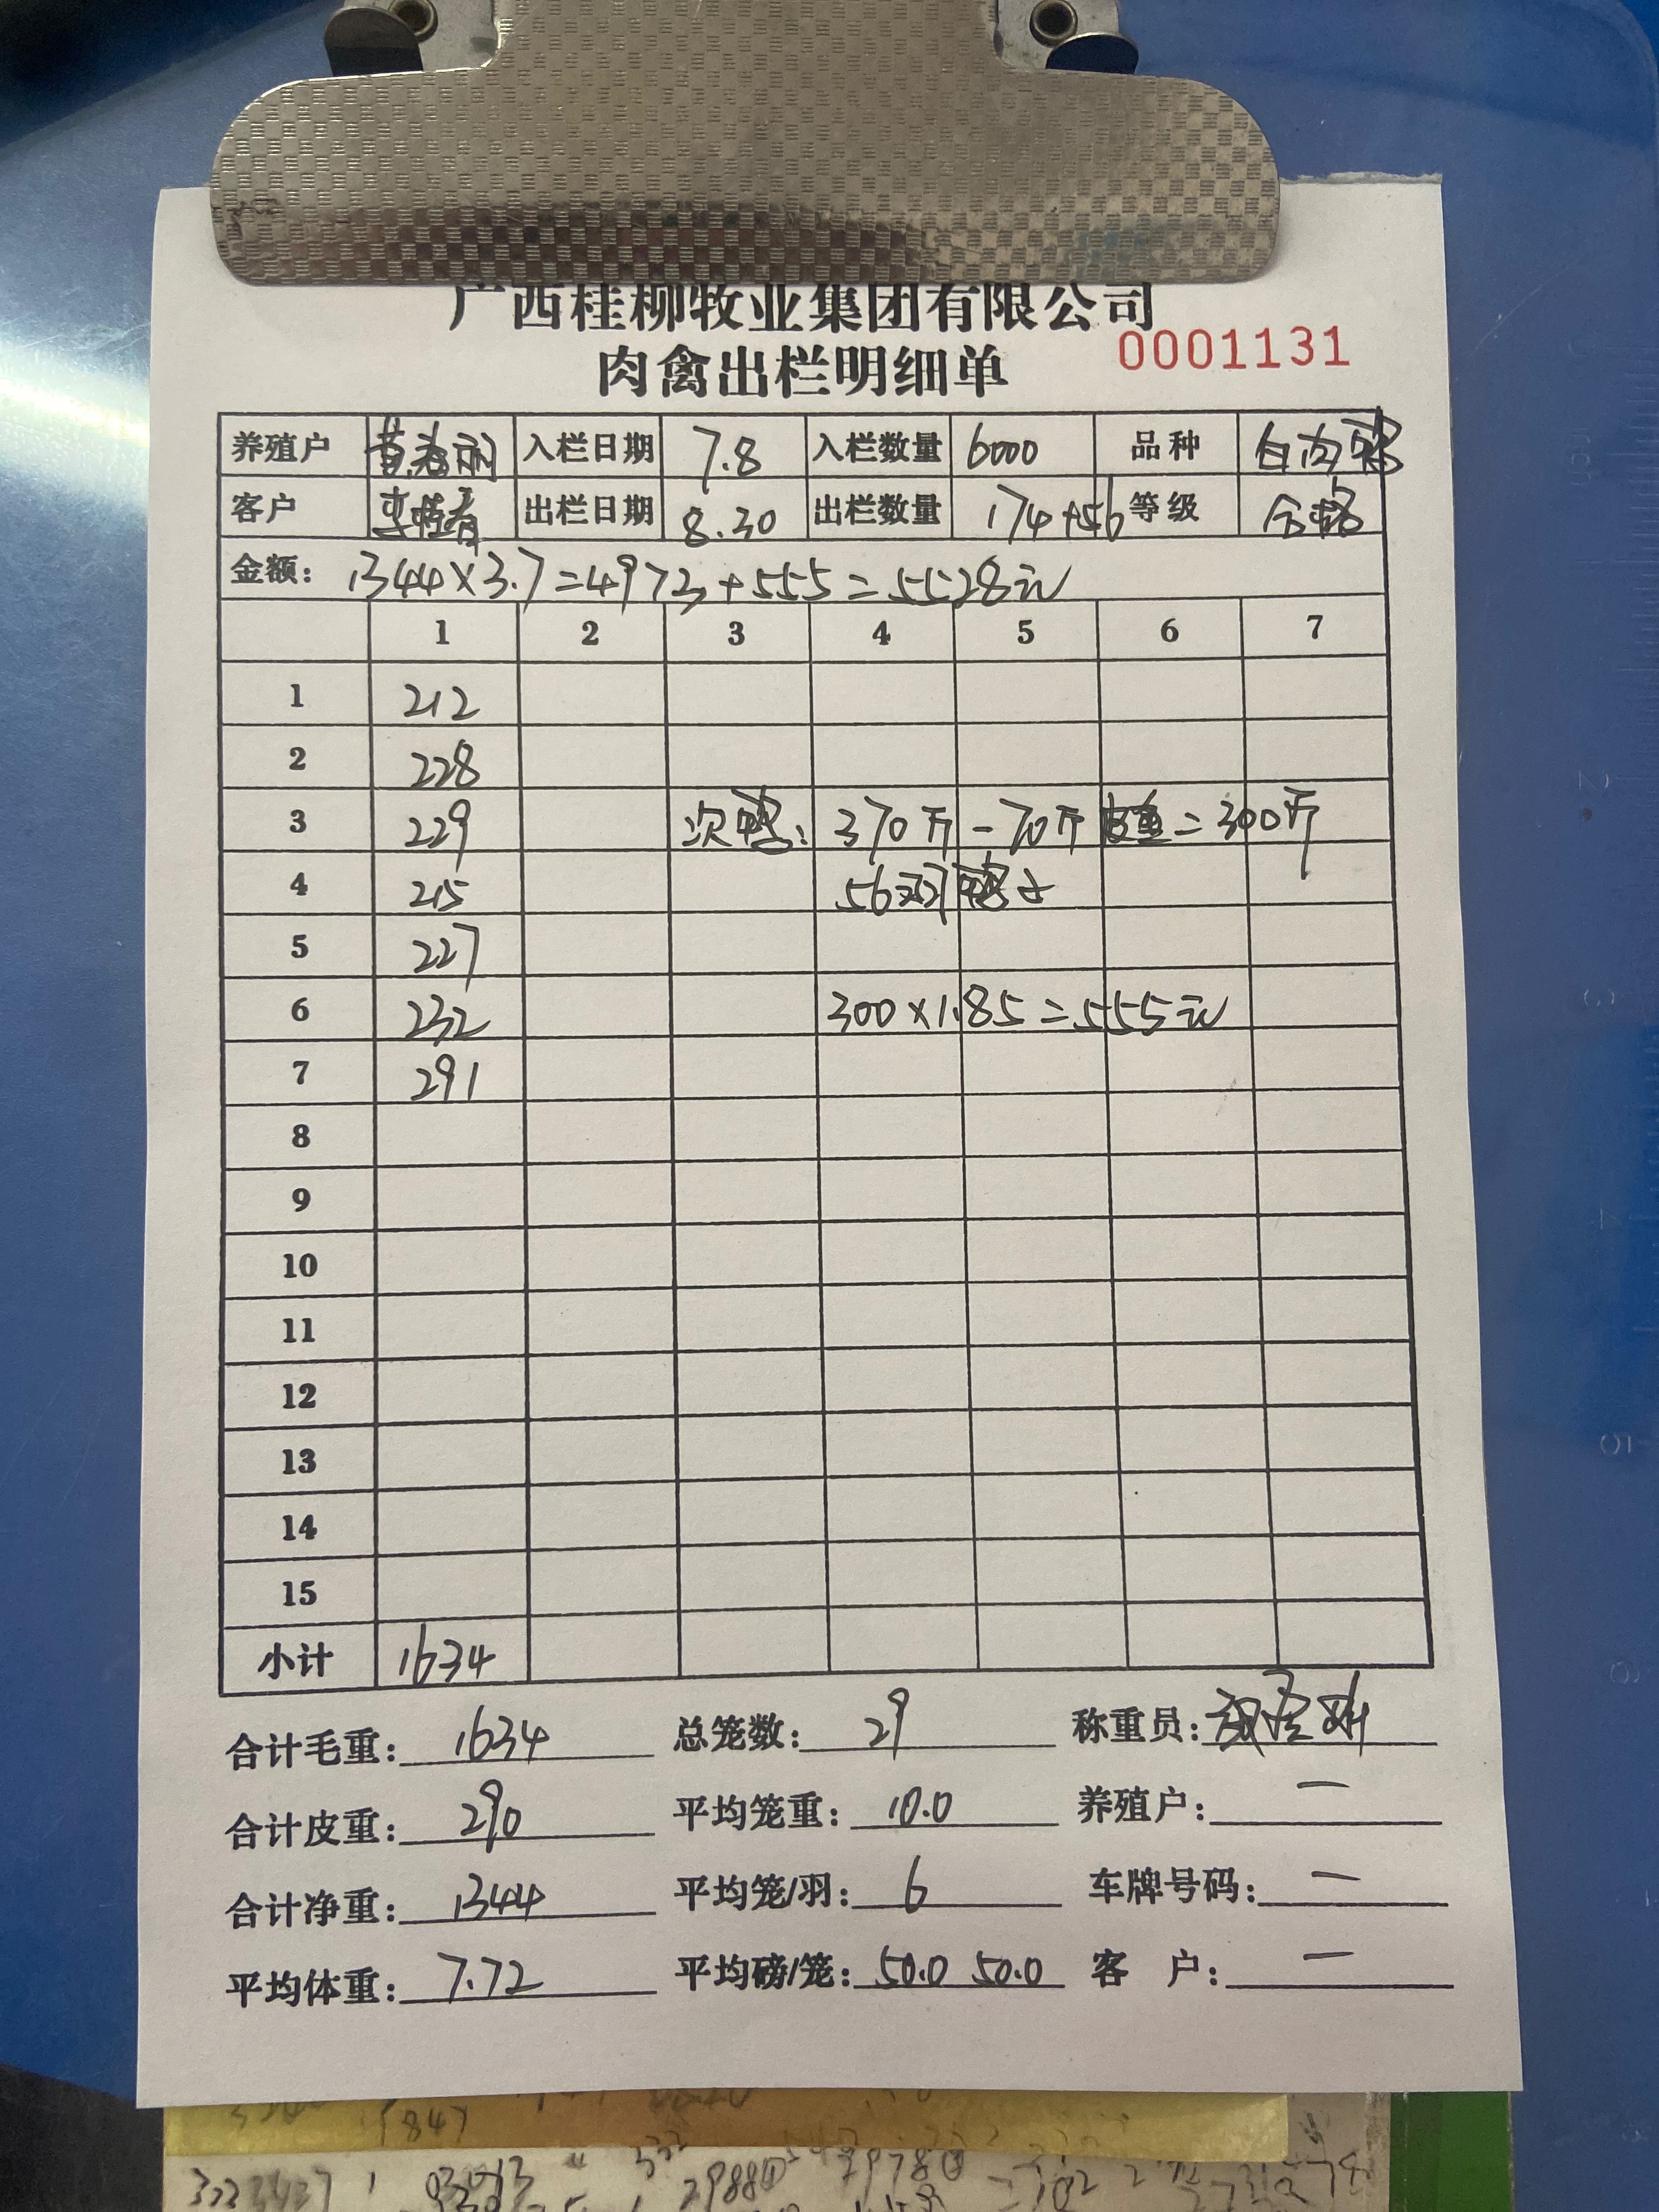 广西桂柳牧业集团有限公司
0001131
肉禽出栏明细单
养殖户 黄春丽 入栏日期 7.8 入栏数量 6000 品种 白肉鸭
客户 出栏日期 8.30 出栏数量 174+56 等级 合格
金额: 1344×3.7=4973+555=5528元
1 2 3 4 5 6 7
1 212
2 228
3 229 次鸭: 370斤-70斤皮重=300斤
4 215 56双鸭子
5 227
6 232 300×1.85=555元
7 291
8
9
10
11
12
13
14
15
小计 1634
合计毛重: 1634 总笼数: 29 称重员:
合计皮重: 290 平均笼重: 10.0 养殖户: 一
合计净重: 1344 平均笼/羽: 6 车牌号码: 一
平均体重: 7.72 平均磅/笼: 50.0 50.0 客 户: 一